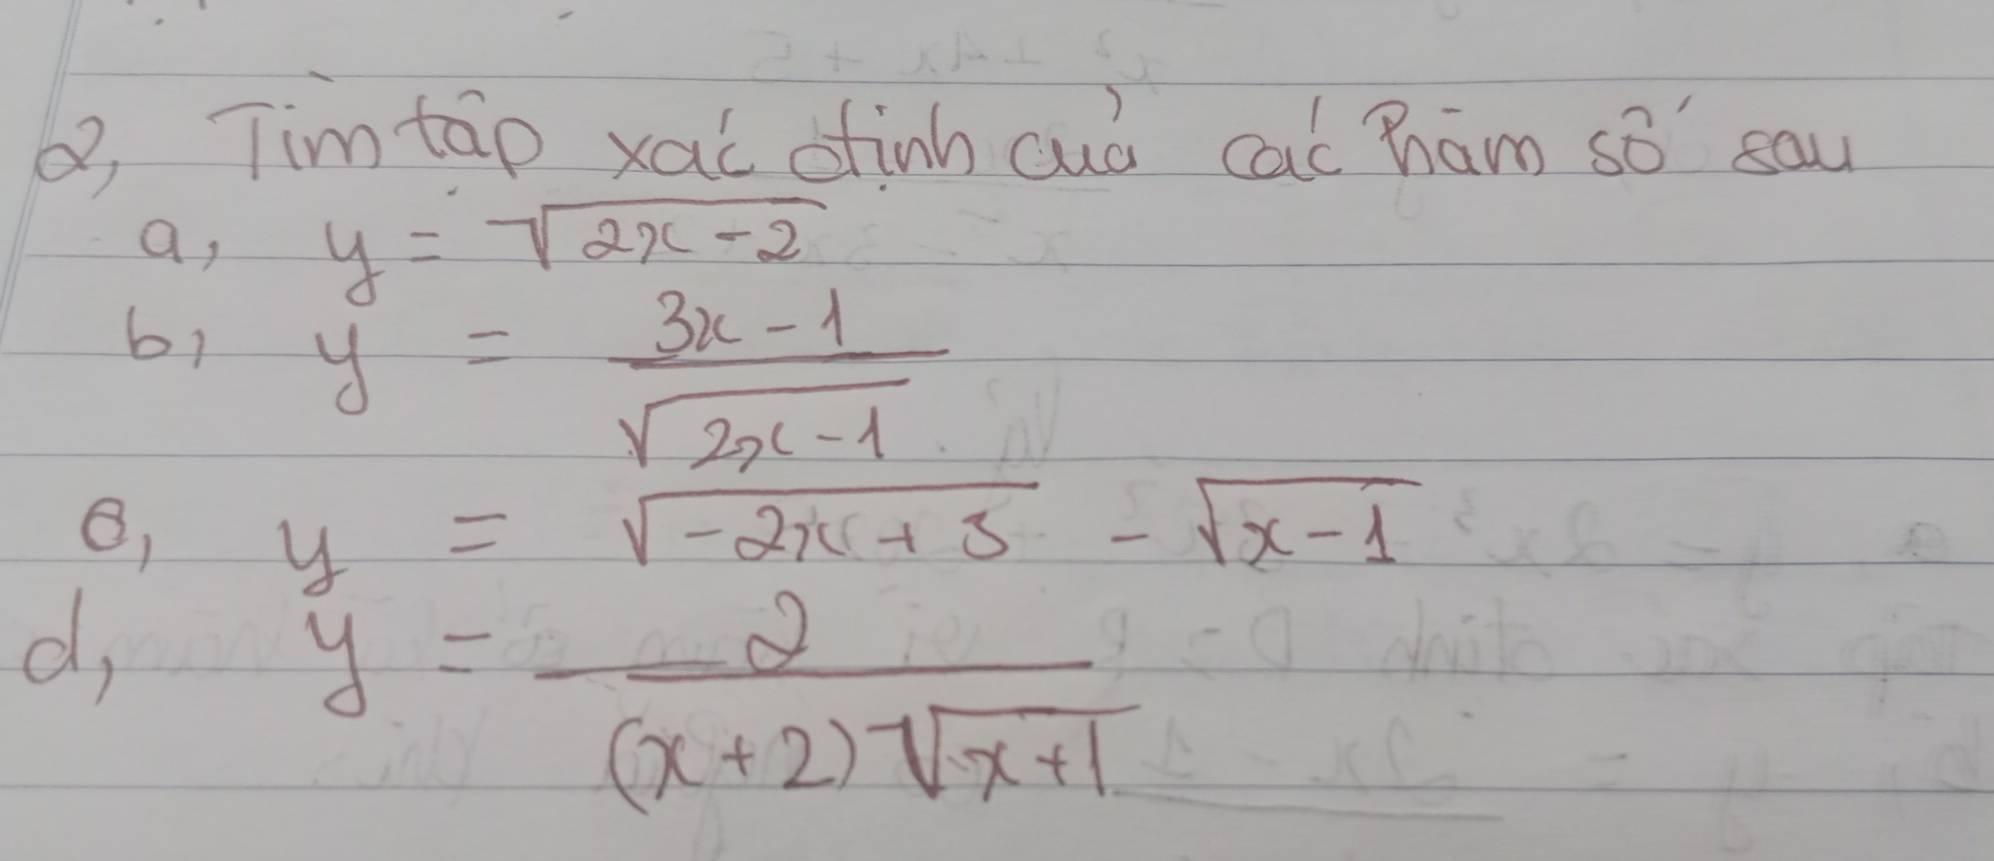 2, Tìm tập xác định của các hàm số sau
a, y = √(2x - 2)
b, y = (3x - 1) / √(2x - 1)
c, y = √(-2x + 3) - √(x - 1)
d, y = 2 / ((x + 2)√(x + 1))